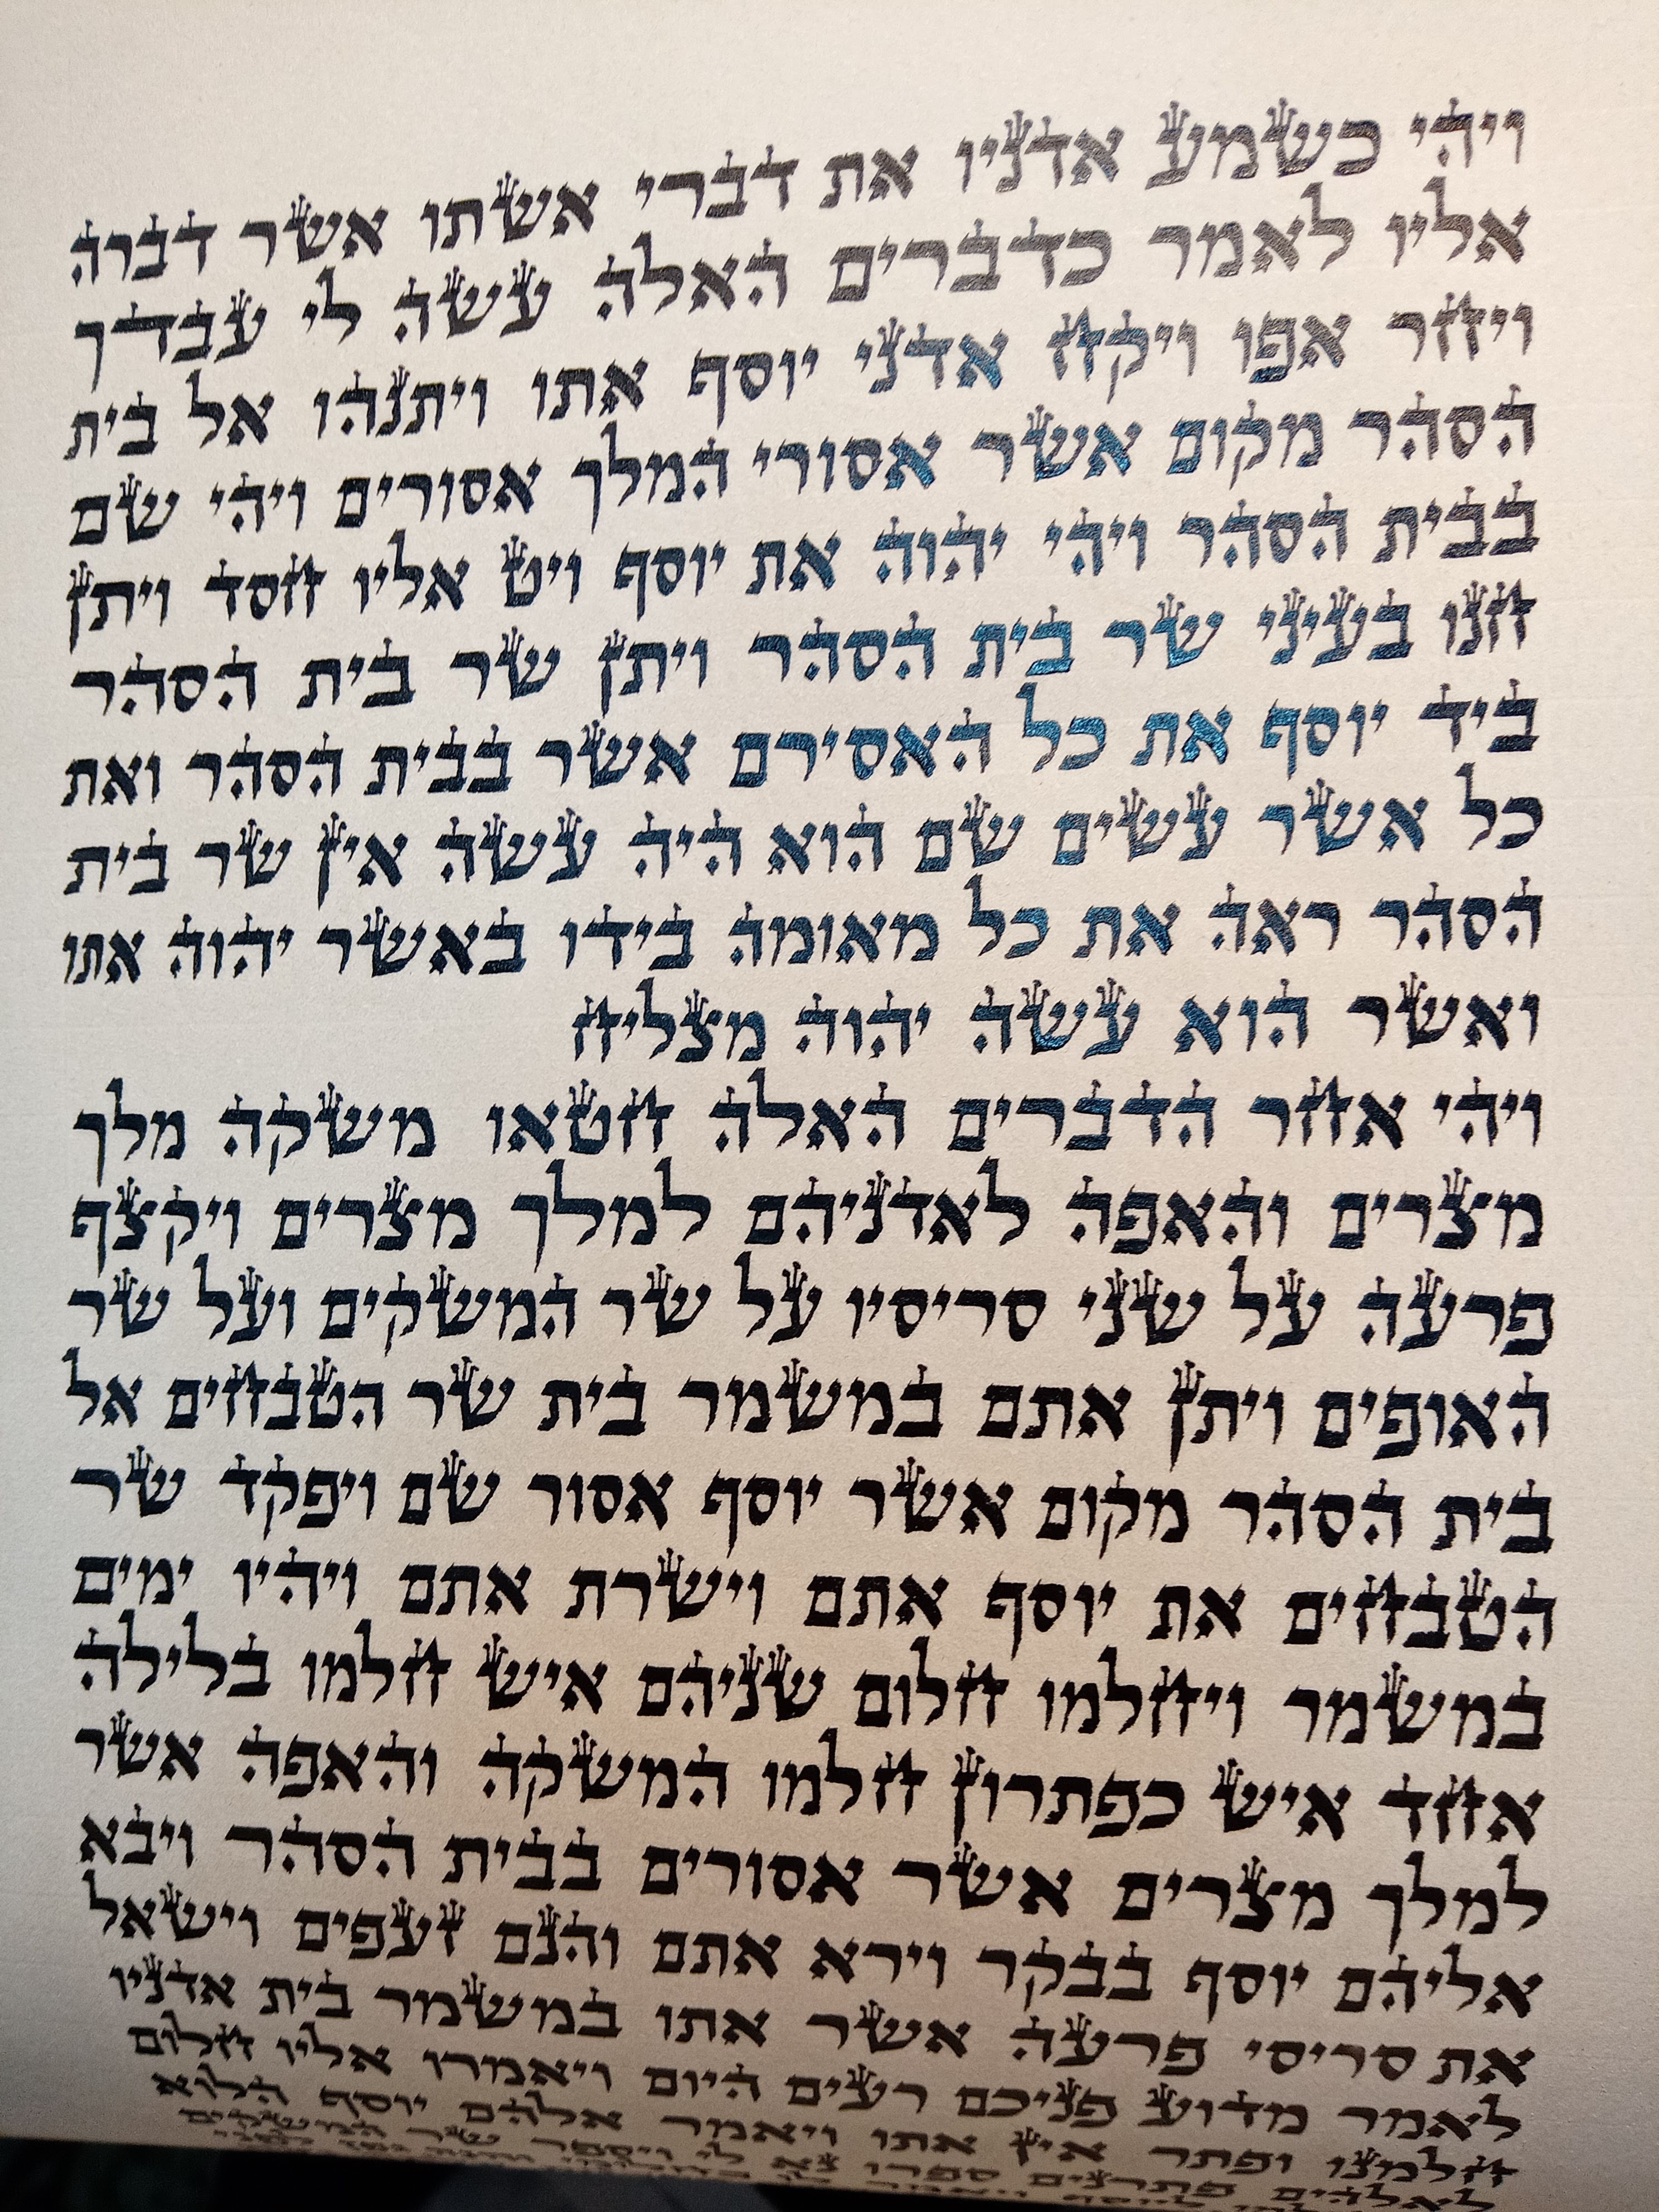 ויהי כשמע אדניו את דברי אשתו אשר דברה
אליו לאמר כדברים האלה עשה לי עבדך
ויחר אפו ויקח אדני יוסף אתו ויתנהו אל בית
הסהר מקום אשר אסורי המלך אסורים ויהי שם
בבית הסהר ויהי יהוה את יוסף ויט אליו חסד ויתן
חנו בעיני שר בית הסהר ויתן שר בית הסהר
ביד יוסף את כל האסירם אשר בבית הסהר ואת
כל אשר עשים שם הוא היה עשה אין שר בית
הסהר ראה את כל מאומה בידו באשר יהוה אתו
ואשר הוא עשה יהוה מצליח
ויהי אחר הדברים האלה חטאו משקה מלך
מצרים והאפה לאדניהם למלך מצרים ויקצף
פרעה על שני סריסיו על שר המשקים ועל שר
האופים ויתן אתם במשמר בית שר הטבחים אל
בית הסהר מקום אשר יוסף אסור שם ויפקד שר
הטבחים את יוסף אתם וישרת אתם ויהיו ימים
במשמר ויחלמו חלום שניהם איש חלמו בלילה
אחד איש כפתרון חלמו המשקה והאפה אשר
למלך מצרים אשר אסורים בבית הסהר ויבא
אליהם יוסף בבקר וירא אתם והנם זעפים וישאל
את סריסי פרעה אשר אתו במשמר בית אדניו
לאמר מדוע פניכם רעים היום ויאמרו אליו חלום
חלמנו ופתר אין אתו ויאמר אלהם יוסף הלוא
לאלהים פתרנים ספרו נא לי ויספר שר המשקים